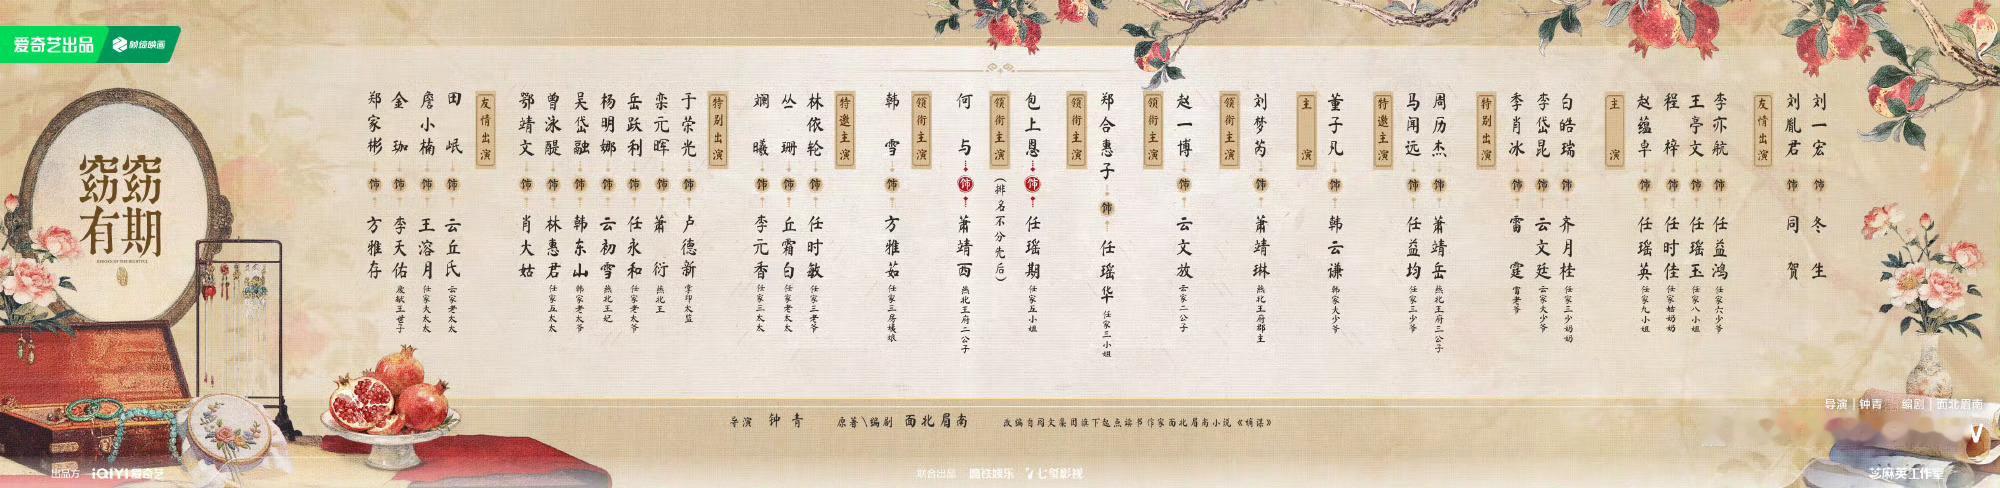 爱奇艺出品
窈窕有期
友情出演
刘一宏 饰 冬生
刘胤君 饰 同贺
主演
李亦航 饰 任益鸿 任家六少爷
王亭文 饰 任瑶玉 任家八小姐
程梓 饰 任时佳 任家姑奶奶
赵蕴卓 饰 任瑶英 任家九小姐
特别出演
白皓瑞 饰 齐月桂 任家三少奶奶
李岱昆 饰 云文廷 云家大少爷
李肖冰 饰 雷霆 雷老爷
特邀主演
周历杰 饰 萧靖岳 燕北王府三公子
马闻远 饰 任益均 任家三少爷
主演
董子凡 饰 韩云谦 韩家大少爷
领衔主演
刘梦芮 饰 萧靖琳 燕北王府郡主
领衔主演
赵一博 饰 云文放 云家二公子
领衔主演
郑合惠子 饰 任瑶华 任家三小姐
领衔主演
包上恩 饰 任瑶期 任家五小姐
(排名不分先后)
何与 饰 萧靖西 燕北王府二公子
领衔主演
韩雪 饰 方雅茹 任家三房姨娘
特邀主演
林依轮 饰 任时敏 任家三老爷
丛珊 饰 丘霜白 任家老太太
斓曦 饰 李元香 任家三太太
特别出演
于荣光 饰 卢德新 掌印太监
栾元晖 饰 萧衍 燕北王
岳跃利 饰 任永和 任家老太爷
杨明娜 饰 云初雪 燕北王妃
吴岱融 饰 韩东山 韩家老太爷
曾泳醍 饰 林惠君 任家五太太
鄂靖文 饰 肖大姑
友情出演
田岷 饰 云丘氏 云家老太太
詹小楠 饰 王溶月 任家大太太
金珈 饰 李天佑 废献王世子
郑家彬 饰 方雅存
导演 钟青 原著\编剧 面北眉南 改编自阅文集团旗下起点读书作家面北眉南小说《嫡谋》
导演|钟青 编剧|面北眉南
出品方 iQIYI爱奇艺
联合出品 七玺影视
芝麻英工作室